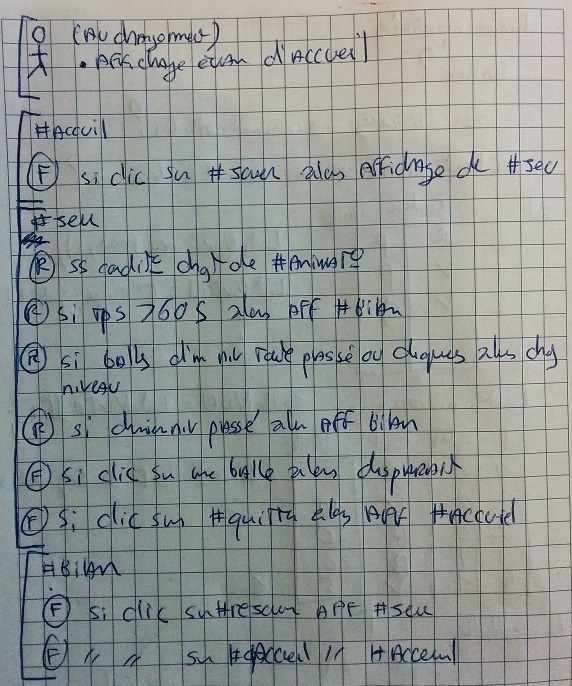 (Au chargement)
• Affichage écran d'Accueil
#Accuil
(F) si clic su # alas Affichage de #seu
#seu
(R) ss chgt de #
(R) si Tps >60 S alas Aff #bilan
(R) si balls niv passé ou cliques alas chg
niveau
(R) si niv passé alas Aff bilan
(F) si clic su une balle alas disparait
(F) si clic sur #quitter alas AFF #Accueil
#Bilan
(F) si clic su AFF #seu
(F) " " su #Accueil " #Accueil